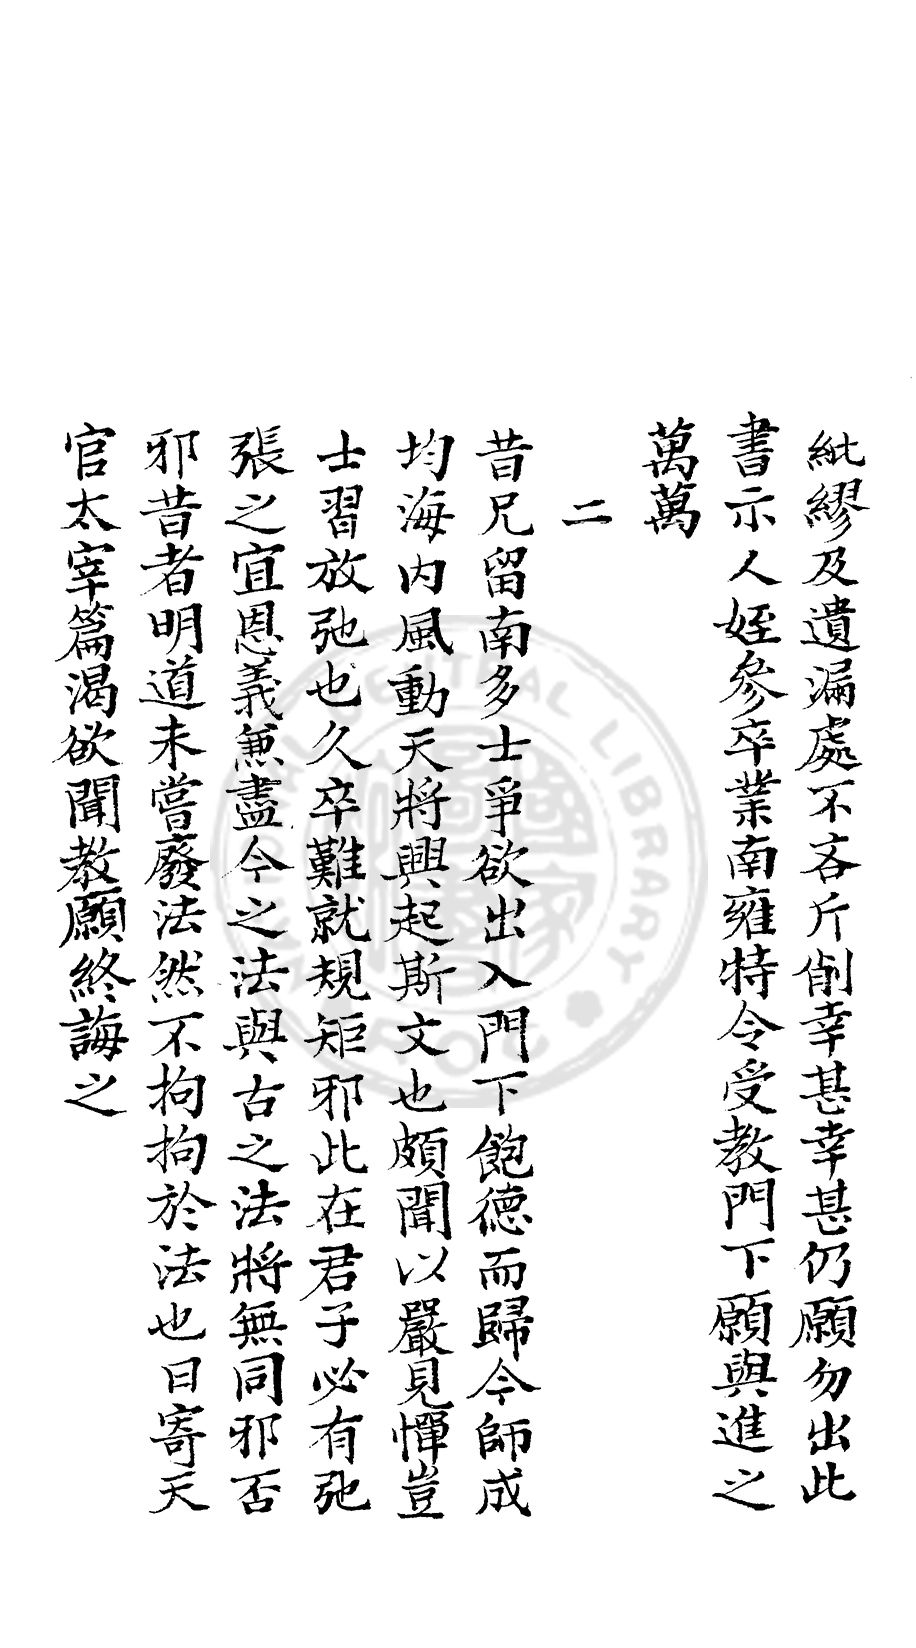 紕繆及遺漏處不吝斤削幸甚幸甚仍願勿出此
書示人姪參卒業南雍特令受教門下願與進之
萬萬
二
昔兄留南多士爭欲出入門下飽德而歸今師成
均海內風動天將興起斯文也頗聞以嚴見憚豈
士習放弛也久卒難就規矩邪此在君子必有弛
張之宜恩義兼盡今之法與古之法將無同邪否
邪昔者明道未嘗廢法然不拘拘於法也日寄天
官太宰篇渴欲聞教願終誨之
NATIONAL CENTRAL LIBRARY
國家圖書館